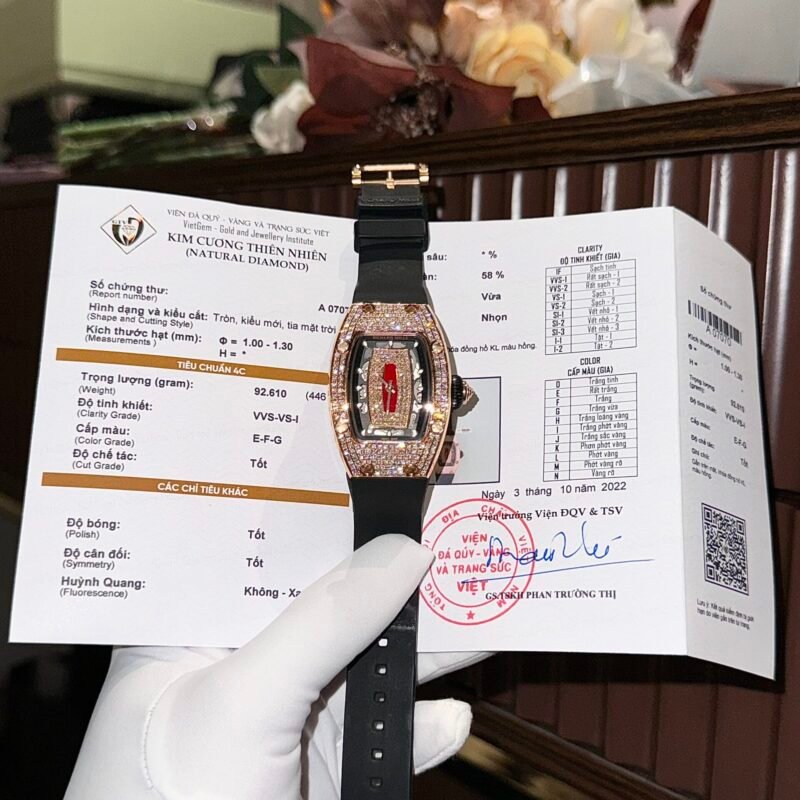 VIỆN ĐÁ QUÝ - VÀNG VÀ TRANG SỨC VIỆT
VietGem - Gold and Jewellery Institute
KIM CƯƠNG THIÊN NHIÊN
(NATURAL DIAMOND)
Số chứng thư:
(Report number)
A 0707
Hình dạng và kiểu cắt: Tròn, kiểu mới, tia mặt trời
(Shape and Cutting Style)
Kích thước hạt (mm):
(Measurements )
Φ = 1.00 - 1.30
H = *
TIÊU CHUẨN 4C
Trọng lượng (gram):
(Weight)
92.610 (446
Độ tinh khiết:
(Clarity Grade)
VVS-VS-I
Cấp màu:
(Color Grade)
E-F-G
Độ chế tác:
(Cut Grade)
Tốt
CÁC CHỈ TIÊU KHÁC
Độ bóng:
(Polish)
Tốt
Độ cân đối:
(Symmetry)
Tốt
Huỳnh Quang:
(Fluorescence)
Không - Xa
sâu: * %
58 %
Vừa
Nhọn
đồng hồ KL màu hồng.
CLARITY
ĐỘ TINH KHIẾT (GIA)
IF Sạch tinh
VVS-1 Rất sạch - 1
VVS-2 Rất sạch - 2
VS-1 Sạch - 1
VS-2 Sạch - 2
SI-1 Vết nhỏ - 1
SI-2 Vết nhỏ - 2
SI-3 Vết nhỏ - 3
I-1 Tạt - 1
I-2 Tạt - 2
COLOR
CẤP MÀU (GIA)
D Trắng tinh
E Rất trắng
F Trắng
G Trắng vừa
H Trắng loáng vàng
I Trắng phớt vàng
J Trắng sắc vàng
K Phơn phớt vàng
L Phớt vàng
M Phớt vàng rõ
N Vàng rõ
Ngày 3 tháng 10 năm 2022
Viện trưởng Viện ĐQV & TSV
VIỆN
ĐÁ QUÝ-VÀNG
VÀ TRANG SỨC
VIỆT
TỔNG
ĐỊA CHẤ
VIỆT NAM
GS.TSKH PHAN TRƯỜNG THỊ
Số chứng thư
A 07070
Kích thước hạt (mm):
Φ = 1.00 - 1.30
H = *
Trọng lượng (gram):
92.610
Độ tinh khiết:
VVS-VS-I
Cấp màu:
E-F-G
Độ chế tác:
Tốt
Lưu ý: Kết quả kiểm định